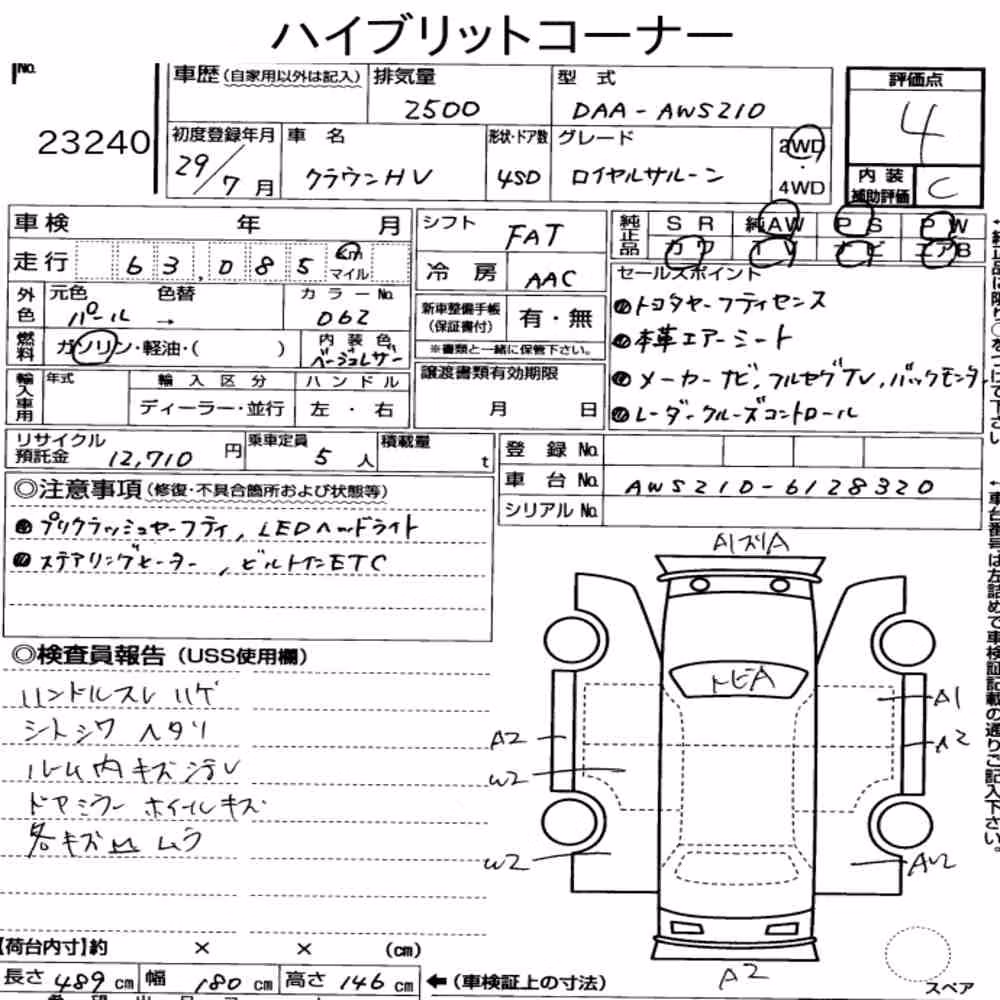 ハイブリットコーナー
No.
23240
車歴(自家用以外は記入)
排気量
2500
型 式
DAA-AWS210
評価点
4
内装補助評価
C
初度登録年月
29/7月
車 名
クラウンHV
形状・ドア数
4SD
グレード
ロイヤルサルーン
2WD
・
4WD
車検 年 月
走行 63,085 Km マイル
シフト
FAT
冷房
AAC
純正品
SR 純AW PS PW
カワ TV ナビ エアB
外色
元色 色替
パール →
カラーNo.
062
燃料
ガソリン・軽油・( )
内装色
ベージュレザー
新車整備手帳
(保証書付)
有・無
※書類と一緒に保管下さい。
セールスポイント
●トヨタセーフティセンス
●本革エアーシート
●メーカーナビ,フルセグTV,バックモニター
●レーダークルーズコントロール
輸入車用
年式
輸入区分
ディーラー・並行
ハンドル
左・右
譲渡書類有効期限
月 日
リサイクル
預託金 12,710 円
乗車定員
5人
積載量
t
登録No.
車台No. AWS210-6128320
シリアルNo.
◎注意事項(修復・不具合箇所および状態等)
●プリクラッシュセーフティ,LEDヘッドライト
●ステアリングヒーター,ビルトインETC
◎検査員報告(USS使用欄)
ハンドルスレ ハゲ
シートシワ ヘタリ
ルーム内キズ汚レ
ドアミラー ホイールキズ
各キズ凹 ムラ
A1ズリA
トビA
A1
A2
A2
W2
W2
AW2
A2
スペア
【荷台内寸】約 × × (cm)
長さ 489 cm 幅 180 cm 高さ 146 cm
←(車検証上の寸法)
←純正品に限り○をつけて下さい
←車台番号は左詰めで車検証記載の通りご記入下さい。